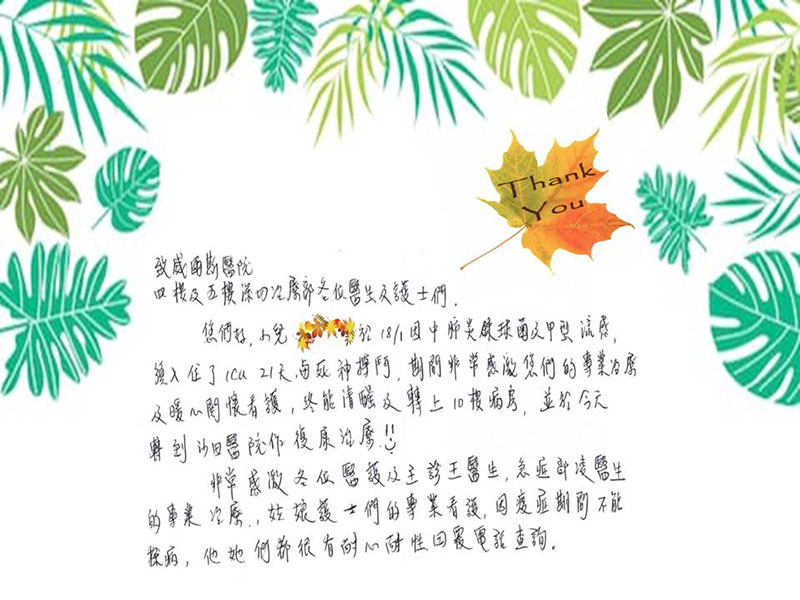 Thank
You
致威爾斯醫院
四樓及五樓深切治療部各位醫生及護士們.
您們好, 小兒 於18/1因中肺炎鏈球菌及甲型流感,
入住了ICU 21天, 與死神搏鬥, 期間非常感激您們的專業治療
及暖心關懷看護, 終能清醒及轉上10樓病房, 並於今天
轉到沙田醫院作復康治療!!
非常感激各位醫護及主診王醫生, 急症部凌醫生
的專業治療., 姑娘護士們的專業看護, 因疫症期間不能
探病, 他她們都很有耐心耐性回覆電話查詢.